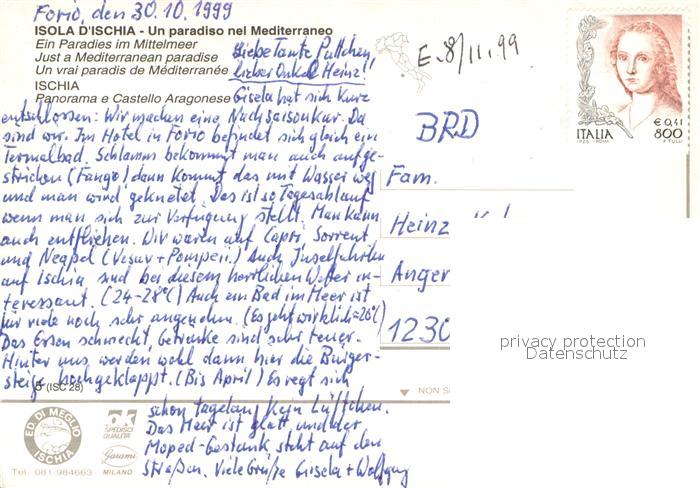 Forio, den 30.10.1999
ISOLA D'ISCHIA - Un paradiso nel Mediterraneo
Ein Paradies im Mittelmeer
Just a Mediterranean paradise
Un vrai paradis de Méditerranée
ISCHIA
Panorama e Castello Aragonese
Liebe Tante Puttchen,
Lieber Onkel Heinz!
Gisela hat sich kurz
entschlossen: Wir machen eine Nachsaisonkur. Da
sind wir. Im Hotel in Forio befindet sich gleich ein
Termalbad. Schlamm bekommt man auch aufge-
strichen (Fango) dann kommt das mit Wasser weg
und man wird geknetet. Das ist so Tagesablauf
wenn man sich zur Verfügung stellt. Man kann
auch entfliehen. Wir waren auf Capri, Sorrent
und Neapel (Vesuv + Pompeii.) Auch Inselfahrten
auf Ischia sind bei diesem herrlichen Wetter in-
teressant. (24-28°C) Auch ein Bad im Meer ist
für viele noch sehr angenehm. (Es geht wirklich ≈ 26°C)
Das Essen schmeckt, Getränke sind sehr teuer.
Hinter uns werden wohl dann hier die Bürger-
steige hochgeklappt. (Bis April) Es regt sich
5 (ISC 28)
schon tagelang kein Lüftchen.
Das Meer ist glatt und der
Moped-Gestank steht auf den
Straßen. Viele Grüße Gisela + Wolfgang
E. 8/11.99
BRD
Fam.
Heinz
Anger
1230
€ 0,41
ITALIA 800
privacy protection
Datenschutz
NON S
ED. DI MEGLIO
ISCHIA
Tel. 081-984663
OK
SPEDISCI
QUALITA'
Garami
MILANO